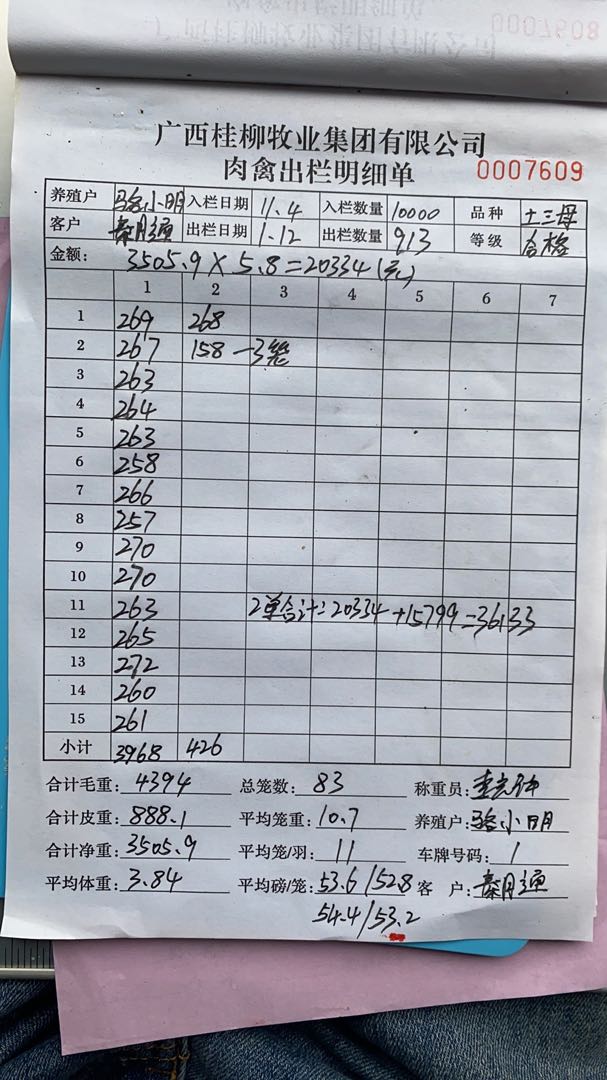 0007608
广西桂柳牧业集团有限公司
肉禽出栏明细单 0007609
养殖户 骆小明 入栏日期 11.4 入栏数量 10000 品种 土三母
客户 秦月通 出栏日期 1.12 出栏数量 913 等级 合格
金额: 3505.9×5.8=20334(元)
1 2 3 4 5 6 7
1 269 268
2 267 158-3笼
3 263
4 264
5 263
6 258
7 266
8 257
9 270
10 270
11 263 2单合计:20334+15799=36133
12 265
13 272
14 260
15 261
小计 3968 426
合计毛重: 4394 总笼数: 83 称重员:
合计皮重: 888.1 平均笼重: 10.7 养殖户: 骆小明
合计净重: 3505.9 平均笼/羽: 11 车牌号码: 1
平均体重: 3.84 平均磅/笼: 53.6/52.8 客 户: 秦月通
54.4/53.2